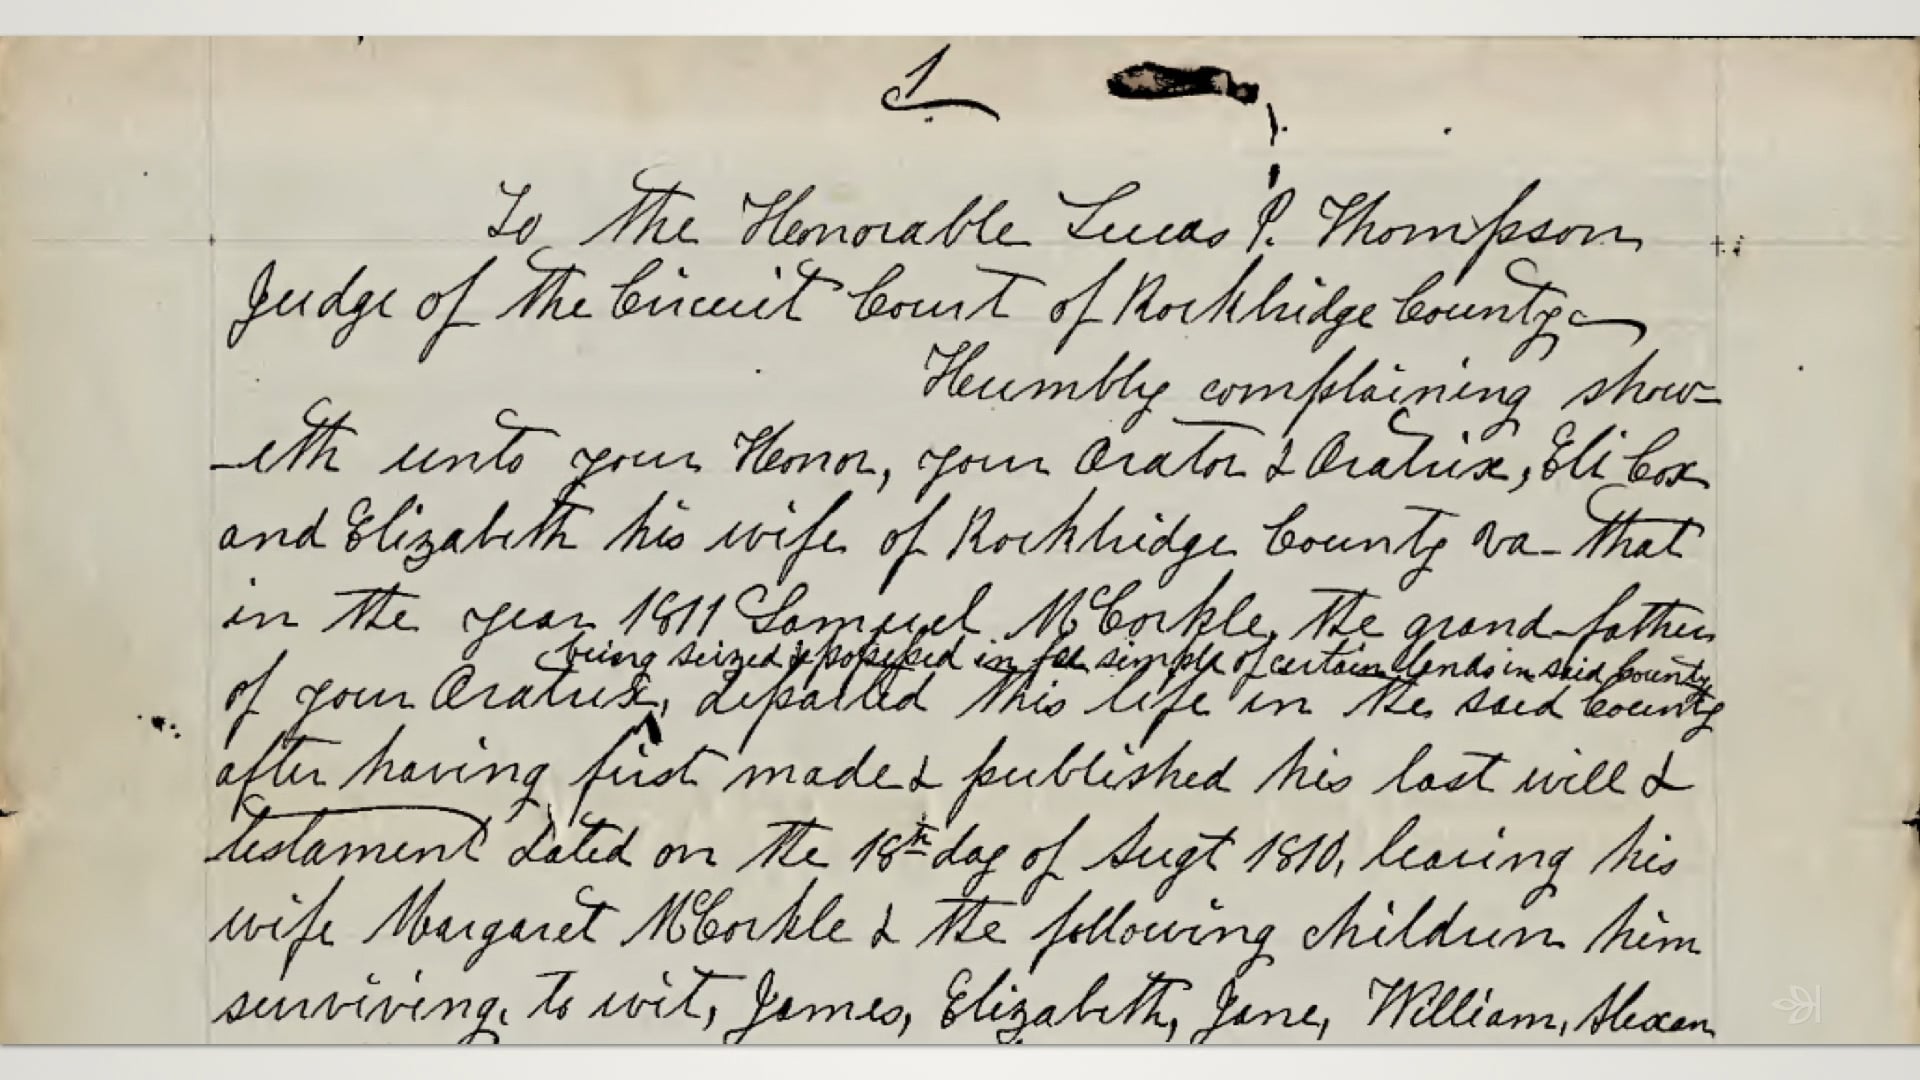 1
To the Honorable Lucas P. Thompson
Judge of the Circuit Court of Rockbridge County
Humbly complaining show-
-eth unto your Honor, your Orator & Oratrix, Eli Cox
and Elizabeth his wife of Rockbridge County Va - that
in the year 1811 Samuel McCorkle, the grand-father
being seized & possessed in fee simple of certain lands in said County
of your Oratrix, departed this life in the said County
after having first made & published his last will &
testament dated on the 18th day of Augt 1810, leaving his
wife Margaret McCorkle & the following children him
surviving, to wit, James, Elizabeth, Jane, William, Alexan